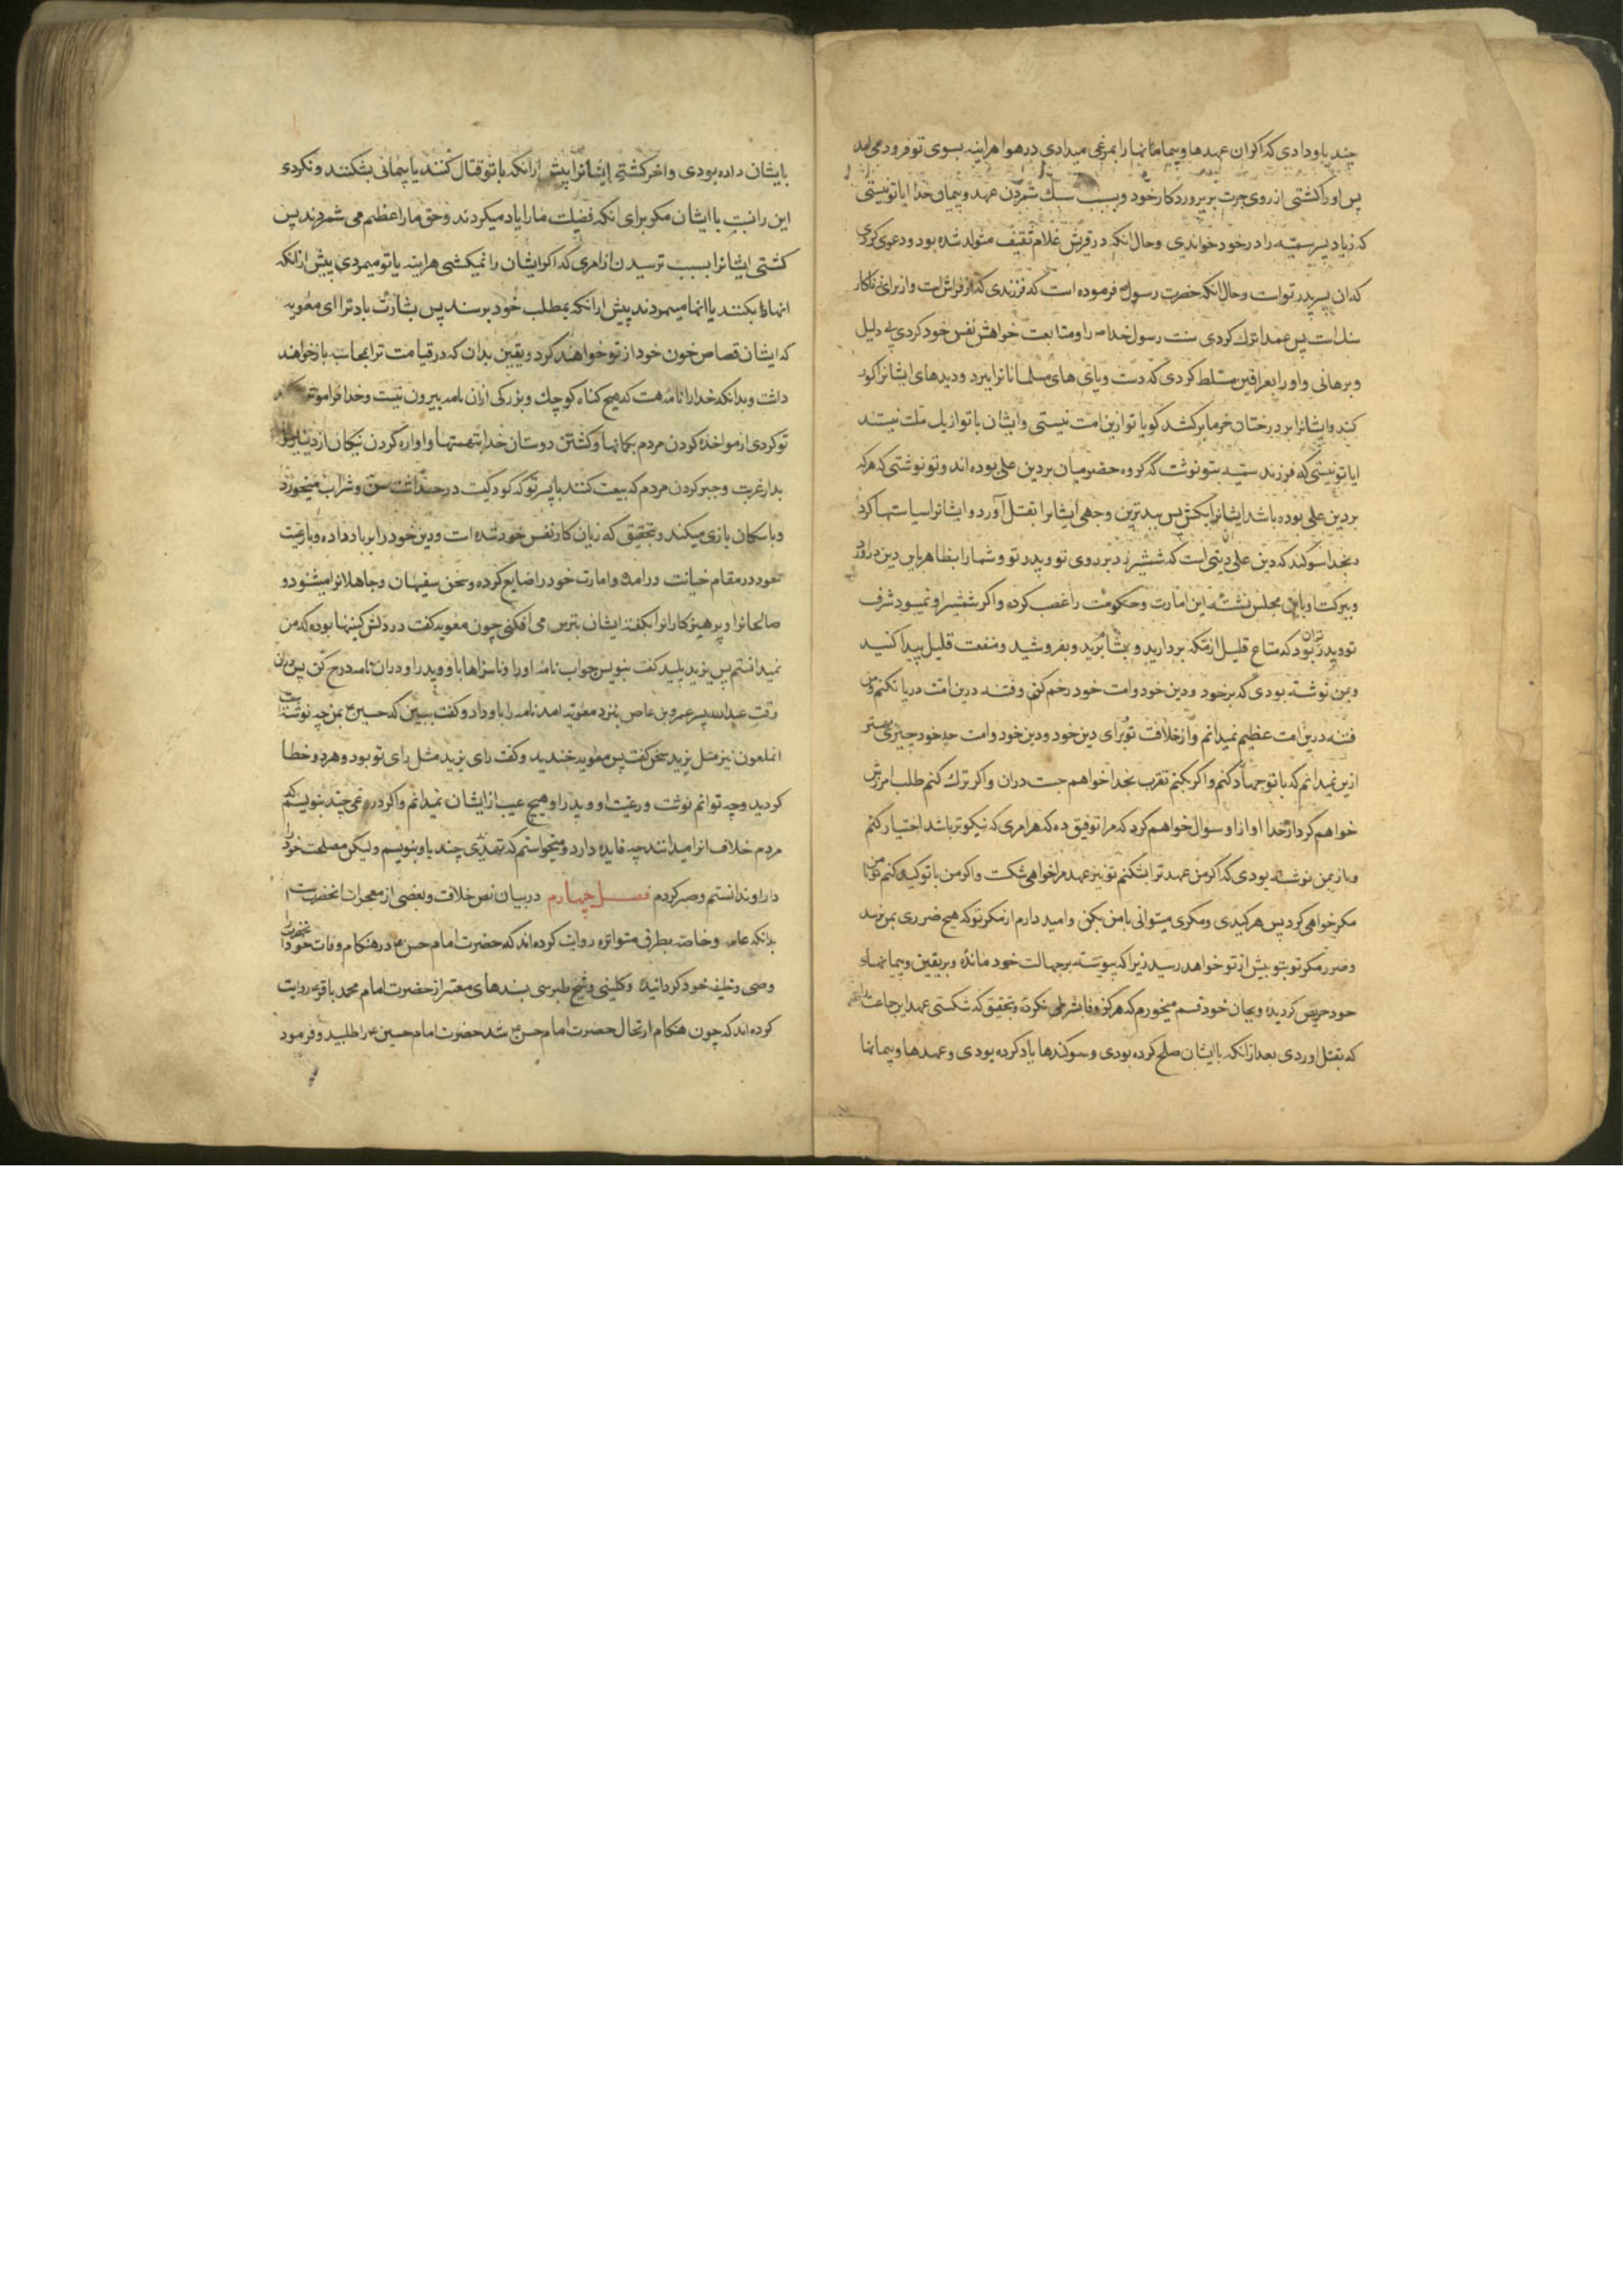 چند باو دادی که اکر ان عهدها و پیمانها را بمرغی میدادی در هوا هراینه بسوی تو فرود می امد
پس او را کشتی از روی جرت بر پروردکار خود و بسبب سبک شمردن عهد و پیمان خدا ایا تو نیستی
که زیاد پسر سمیه را در خود خواندی وحال انکه در فرش غلام ثقیف متولد شده بود و دعوی کردی
که ان پسر پدر تو است وحال انکه حضرت رسول فرموده است که فرزندی که از فراش است و از برای زناکار
سنک است پس عمدا ترک کردی سنت رسول خدا ص را و متابعت خواهش نفس خود کردی بی دلیل
و برهانی و او را بعراقین مسلط کردی که دست و پای های مسلمانانرا ببرد و دیدهای ایشانرا کور
کند و ایشانرا بر درختان خرما برکشد کویا تو ازین امت نیستی و ایشان با تو از یک ملت نیستند
ایا تو نیستی که فرزند سمیه بتو نوشت که کروه حضرمیان بر دین علی بوده اند و تو نوشتی که هرکه
بر دین علی بوده باشد ایشانرا بکش پس ببدترین وجهی ایشانرا بقتل آورد و ایشانرا سیاستها کرد
و بخدا سوکند که دین علی دینی است که شمشیر زد بر روی تو و پدر تو و شما را بظاهر باین دین در اورد
و ببرکت او باین مجلس نشسته این امارت و حکومت را غصب کرده و اکر شمشیر او نمیبود شرف
تو و پدران بود که متاع قلیل از مکه بردارید و بشام برید و بفروشید و منفعت قلیل پیدا کنید
و بمن نوشته بودی که بر خود و دین خود و امت خود رحم کنی و فتنه درین امت درپا نکنم و من
فتنه درین امت عظیم نمیدانم و از خلافت تو برای دین خود و دین خود و امت جد خود چیزی بهتر
ازین نمیدانم که با تو جهاد کنم و اکر بکنم تقرب بخدا خواهم جست دران و اکر ترک کنم طلب امرزش
خواهم کرد از خدا و از او سوال خواهم کرد که مرا توفیق ده که هر امری که نیکوتر باشد اختیار کنم
و باز بمن نوشته بودی که اکر من عهد ترا بشکنم تو نیز عهد مرا خواهی شکست و اکر من با تو کید کنم تو با من
مکر خواهی کرد پس هر کیدی و مکری میتوانی با من بکن و امید دارم از مکر تو که هیچ ضرری بمن نرسد
و ضرر مکر تو بتو بیش از تو خواهد رسید زیرا که پیوسته بر جهالت خود مانده و بر یقین و پیمانهاء
خود حریص کردیده و بجان خود قسم میخورم که هرکز وفا بشرطی نکرده و بتحقیق که شکستی عهد این جماعت را
که بقتل اوردی بعد از انکه با ایشان صلح کرده بودی و سوکندها یاد کرده بودی و عهدها و پیمانها
بایشان داده بودی و اخر کشتی ایشانرا پیش ازانکه با تو قتال کنند یا پیمانی بشکنند و نکردی
این را نسبت با ایشان مکر برای انکه فضیلت ما را یاد میکردند و حق ما را عظیم می شمردند پس
کشتی ایشانرا بسبب ترسیدن از امری که اکر ایشان را نمیکشی هراینه یا تو میمردی پیش ازانکه
انها بکنند یا انها میمردند پیش ازانکه بمطلب خود برسند پس بشارت باد ترا ای معویه
که ایشان قصاص خون خود از تو خواهند کرد و یقین بدان که در قیامت ترا بمحاسبه باز خواهند
داشت و بدانکه خدا را نامه هست که هیچ کناه کوچک و بزرکی ازان نامه بیرون نیست و خدا فراموش
تو کردی از مواخذه کردن مردم بکمانها و کشتن دوستان خدا بتهمتها و اواره کردن نیکان از دیار
بدار غربت و جبر کردن مردم که بیعت کنند با پسر تو که کودکیت در حداثت سن و شراب میخورد
و با سکان بازی میکند و بتحقیق که زیان کار نفس خود شده است و دین خود را بر باد داده و با رعیت
خود در مقام خیانت درامده و امارت خود را ضایع کرده و سخن سفیهان و جاهلانرا میشنود و
صالحانرا و پرهیزکارانرا بکفته ایشان بترس می افکنی چون معویه کفت در دلش کینها بوده که من
نمیدانستم پس یزید پلید کفت بنویس جواب نامه او را و ناسزاها باو و پدر او دران نامه درج کن پس دران
وقت عبدالله پسر عمرو بن عاص بنزد معویه امد نامه را باو داد و کفت ببین که حسین بمن چه نوشته است
انملعون نیز مثل یزید سخن کفت پس معویه خندید و کفت رای یزید مثل رای تو بود و هردو خطا
کردید و چه توانم نوشت و رعیت او و پدر او هیچ عیب از ایشان نمیدانم و اکر دروغی چند بنویسم که
مردم خلاف انرا میدانند چه فایده دارد و میخواستم که تهدیدی چند باو بنویسم و لیکن مصلحت خود را
دران ندانستم و صبر کردم فصل چهارم در بیان نص خلافت و بعضی از معجزات انحضرت است
بدانکه عامه و خاصه بطرق متواتره روایت کرده اند که حضرت امام حسن در هنکام وفات خود انحضرت را
وصی و خلیفه خود کردانید و کلینی و شیخ طبرسی بسندهای معتبر از حضرت امام محمد باقر روایت
کرده اند که چون هنکام ارتحال حضرت امام حسن شد حضرت امام حسین را طلبید و فرمود